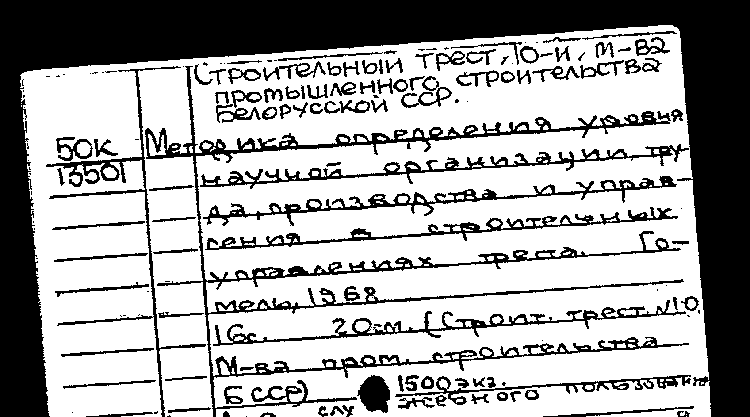 Строительный трест, 10-й, М-ва
промышленного строительства
Белорусской ССР.
50К Методика определения уровня
13501 научной организации тру-
да, производства и управ-
ления в строительных
управлениях треста. Го-
мель, 1968
16с. 20см. (Строит. трест N10
М-ва пром. строительства
БССР) 1500 экз.
слу жебного пользования